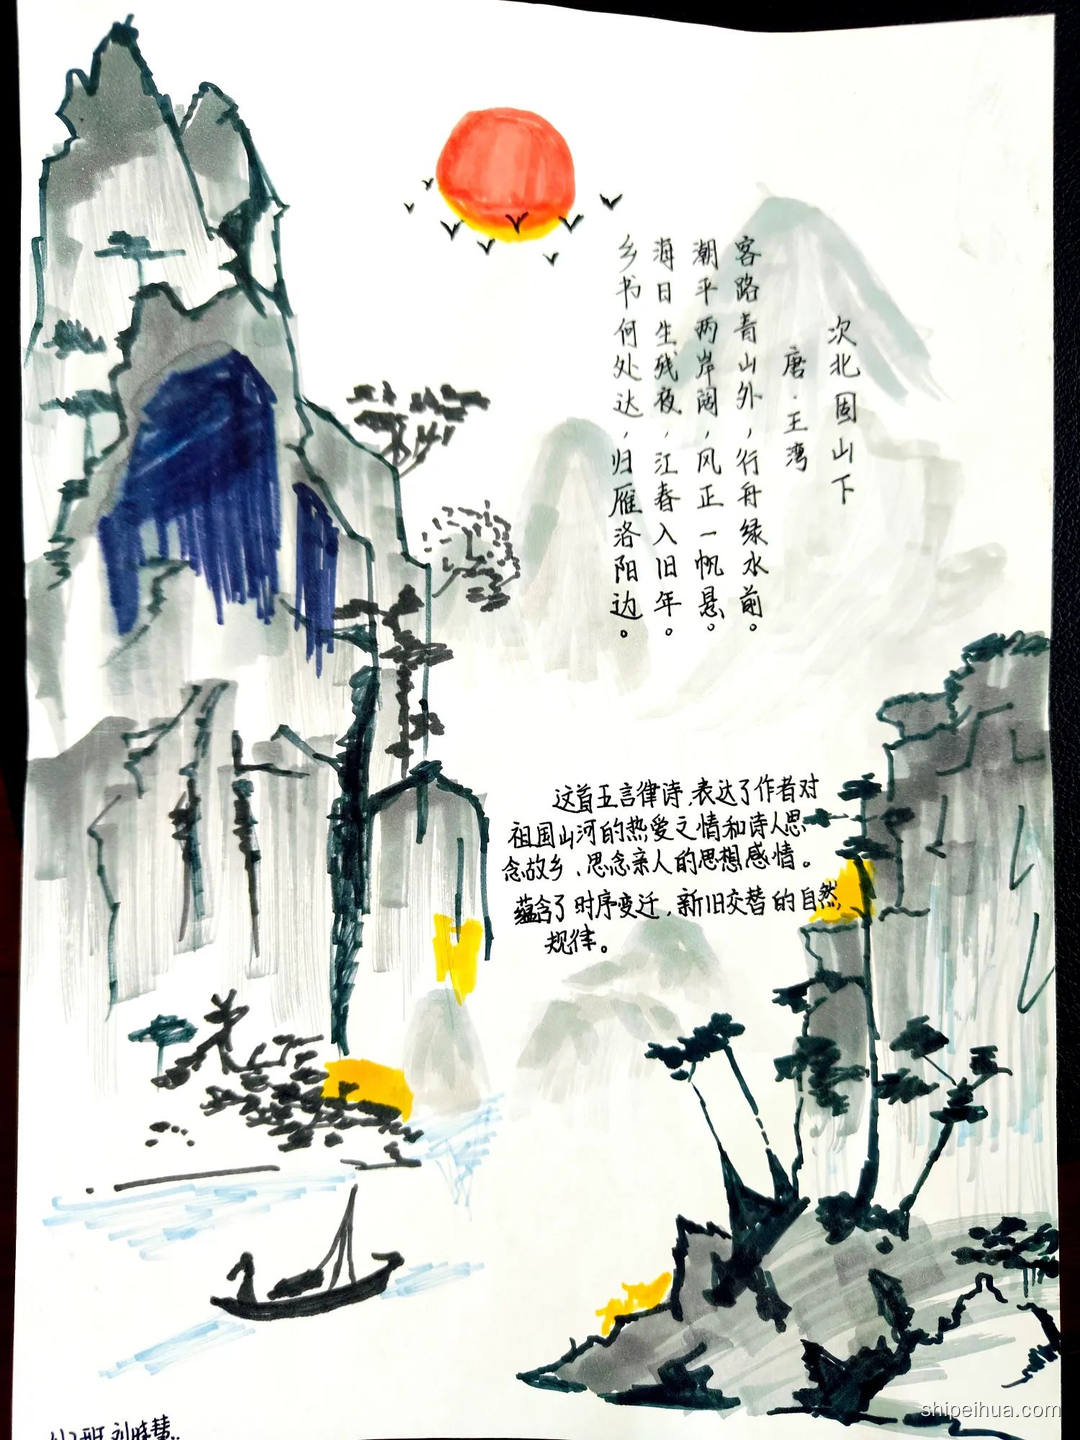 次北固山下
唐·王湾
客路青山外，行舟绿水前。
潮平两岸阔，风正一帆悬。
海日生残夜，江春入旧年。
乡书何处达，归雁洛阳边。
这首五言律诗，表达了作者对
祖国山河的热爱之情和诗人思
念故乡、思念亲人的思想感情。
蕴含了时序变迁，新旧交替的自然
规律。
shipeihua.com